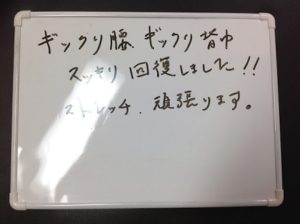 ギックリ腰 ギックリ背中
スッキリ 回復しました!!
ストレッチ、頑張ります。